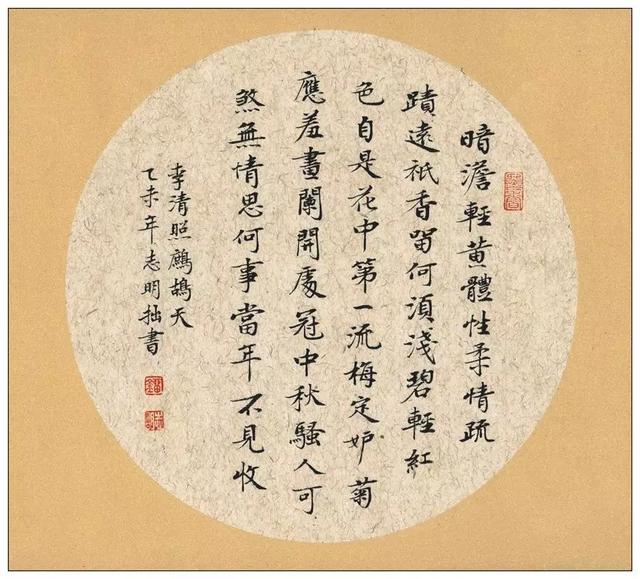 暗澹輕黃體性柔情疏
蹟遠祇香畱何須淺碧輕紅
色自是花中第一流梅定妒菊
應羞畫闌開處冠中秋騷人可
煞無情思何事當年不見收
李清照鷓鴣天
乙未年志明拙書